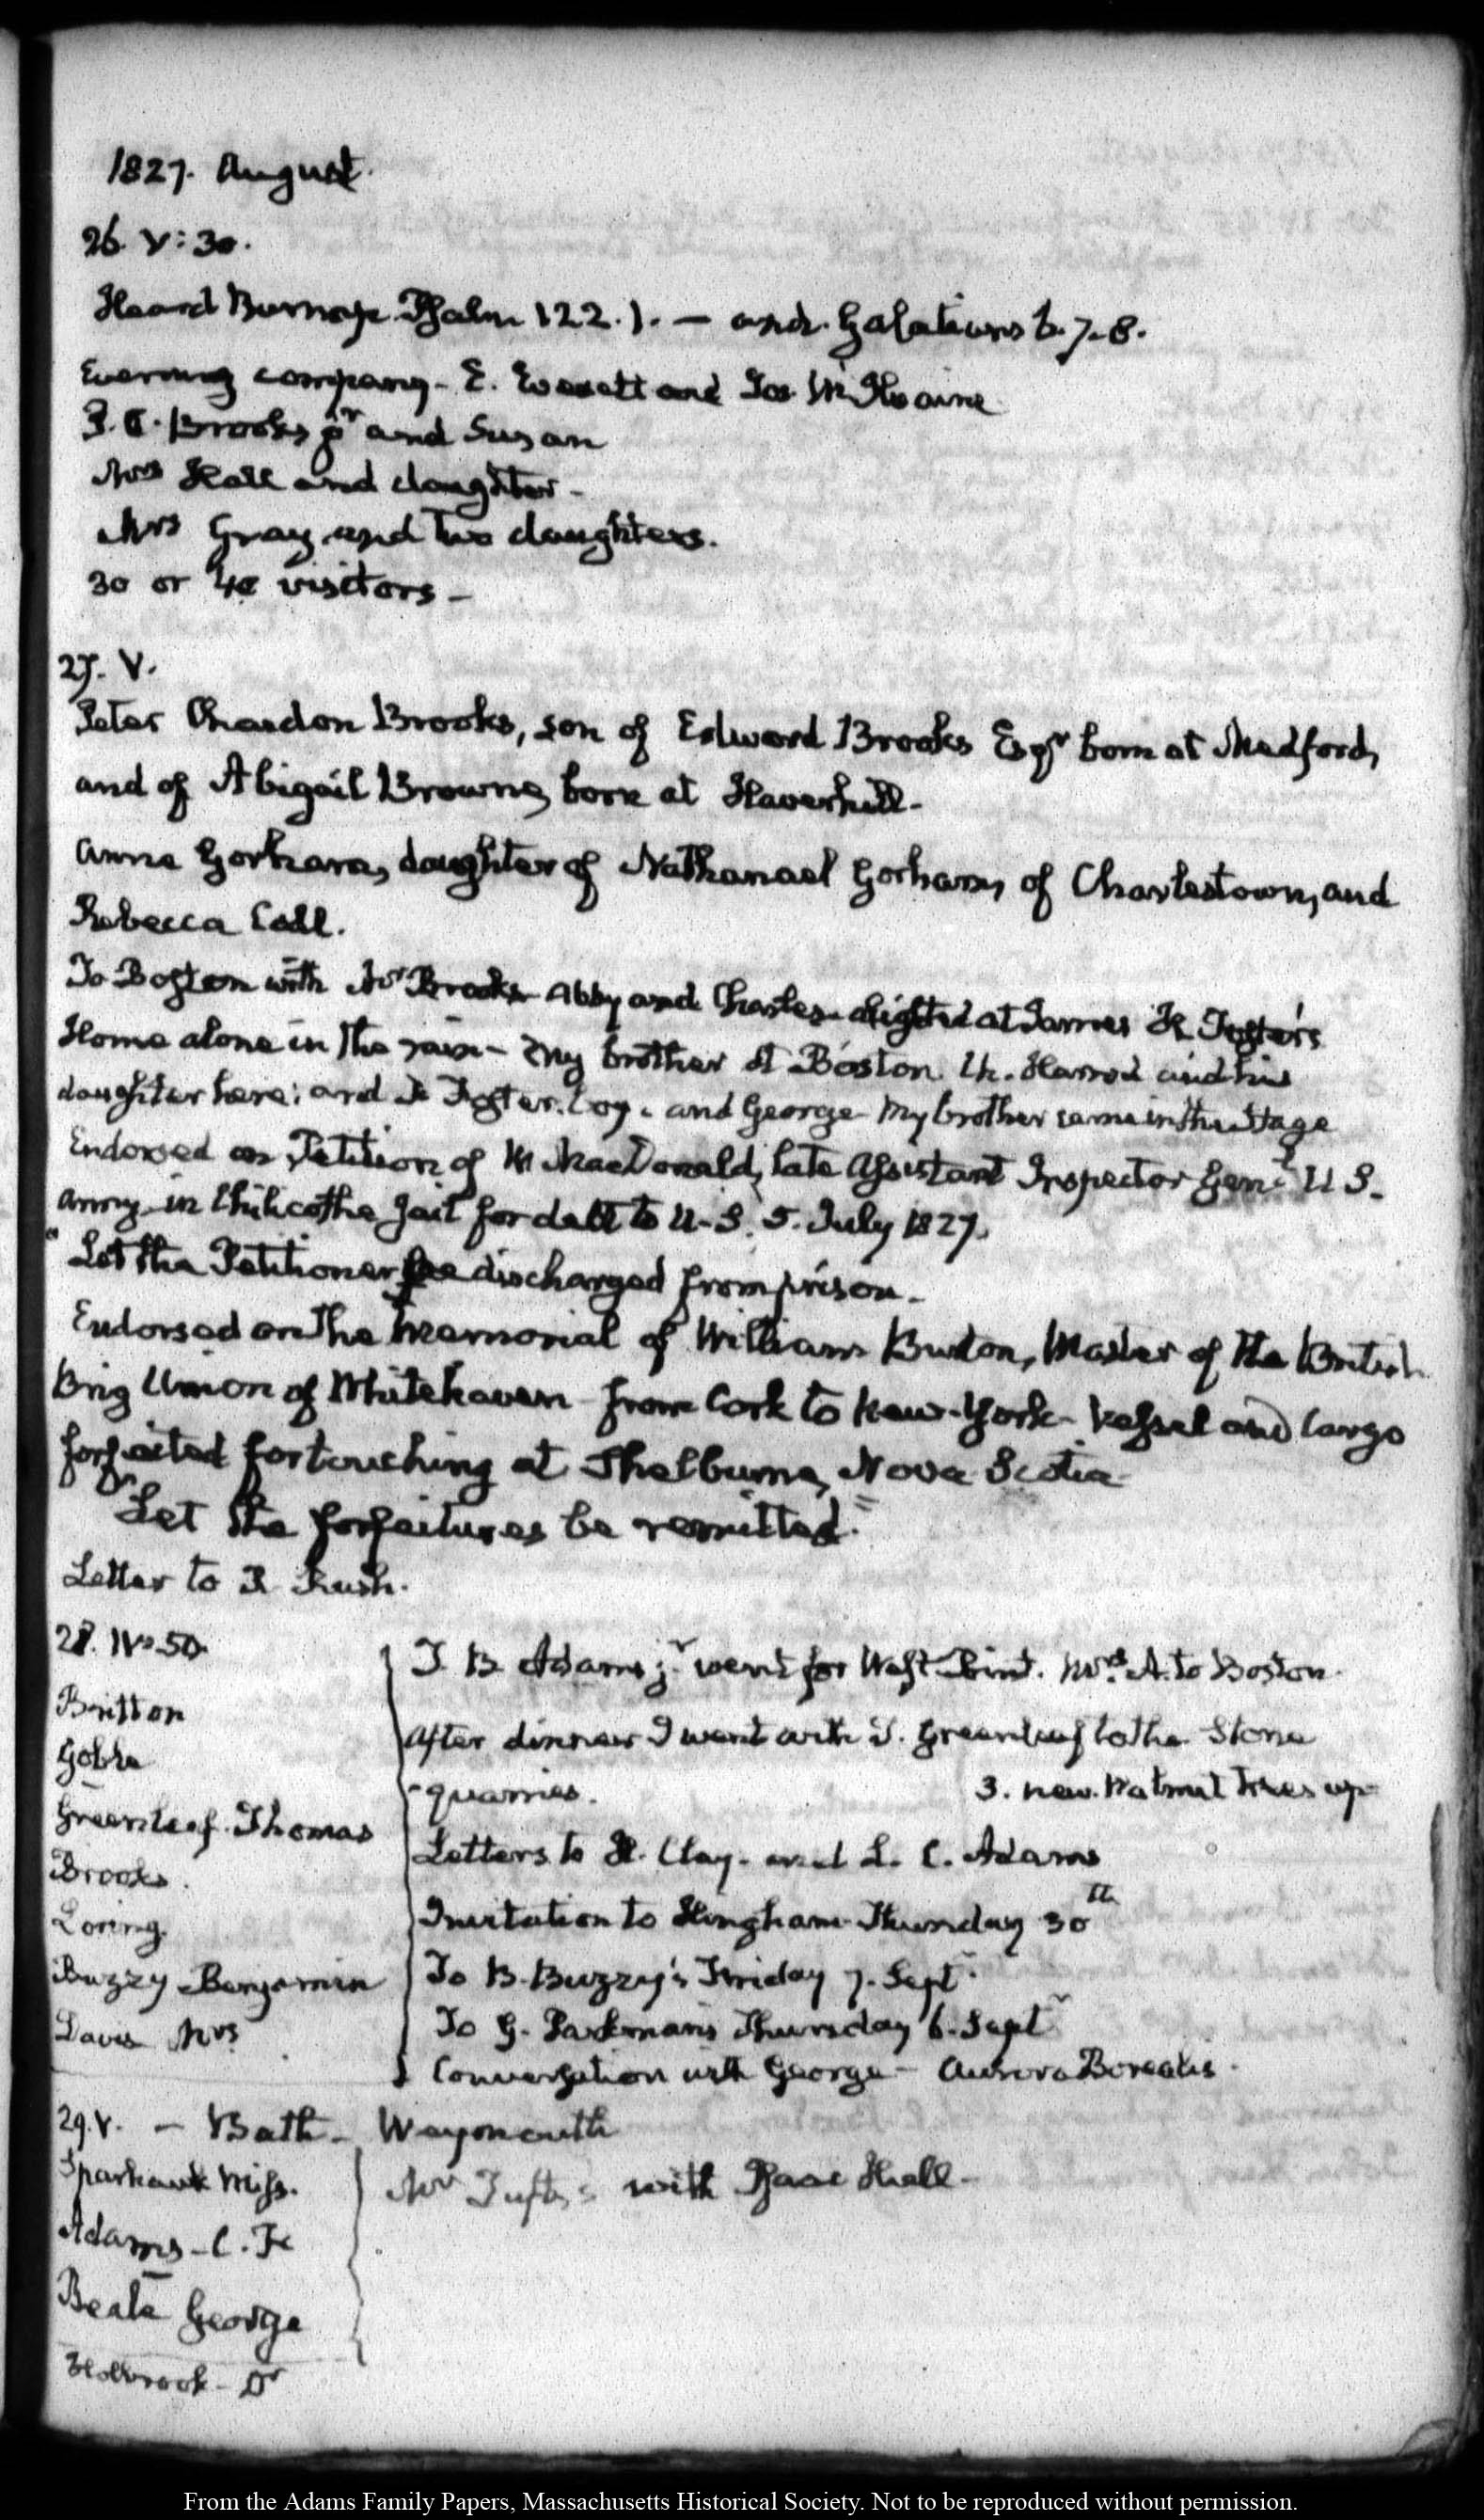 1827. August.
26. V:30.
Heard Burnap. Psalm 122.1. — and Galatians 6. 7-8.
Evening company - E. Everett and Jos. McIlvaine
P. C. Brooks jr and Susan
Mrs Hall and daughter -
Mrs Gray and two daughters.
30 or 40 visitors -
27. V.
Peter Chardon Brooks, son of Edward Brooks Esqr born at Medford,
and of Abigail Browne, born at Haverhill -
Anne Gorham, daughter of Nathanael Gorham, of Charlestown, and
Rebecca Call.
To Boston with Mr Brooks Abby and Charles - alighted at James H. Foster's
Home alone in the rain - My brother at Boston. Ch. Harrod and his
daughter here: and Foster. boy. and George - My brother came in the Stage
Endorsed on Petition of MacDonald, late Assistant Inspector Genl U S.
Army in Chilicothe Jail for debt to U.S. 5. July 1827.
"Let the Petitioner be discharged from prison -
Endorsed on the Memorial of William Burton, Master of the British
Brig Union of Whitehaven from Cork to New-York - Vessel and Cargo
forfeited for touching at Shelburne, Nova Scotia -
"Let the forfeitures be remitted."
Letter to R Rush.
28. IV:50.
Britton
Goble
Greenleaf. Thomas
Brooks.
Loring.
Buzzy Benjamin
Davis Mrs
J. B. Adams jr. went for West Point. Mrs. A. to Boston.
After dinner I went with T. Greenleaf to the Stone
quarries. 3. new Walnut trees up
Letters to H. Clay. and L. C. Adams
Invitation to Hingham Thursday 30th
To B. Buzzy's Friday 7. Septr
To G. Parkman's Thursday 6. Septr
Conversation with George - Aurora Borealis.
29. V. - Bath - Weymouth
Sparhawk Miss.
Adams - C. F.
Beale George
Holbrook - Dr
Mr Tufts with Hall -